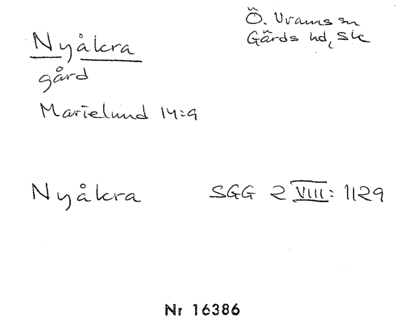 Nyåkra
Ö. Vrams sn
Gärds hd, Sk
gård
Marielund 14:9
Nyåkra SGG 2 VIII: 1129
Nr 16386